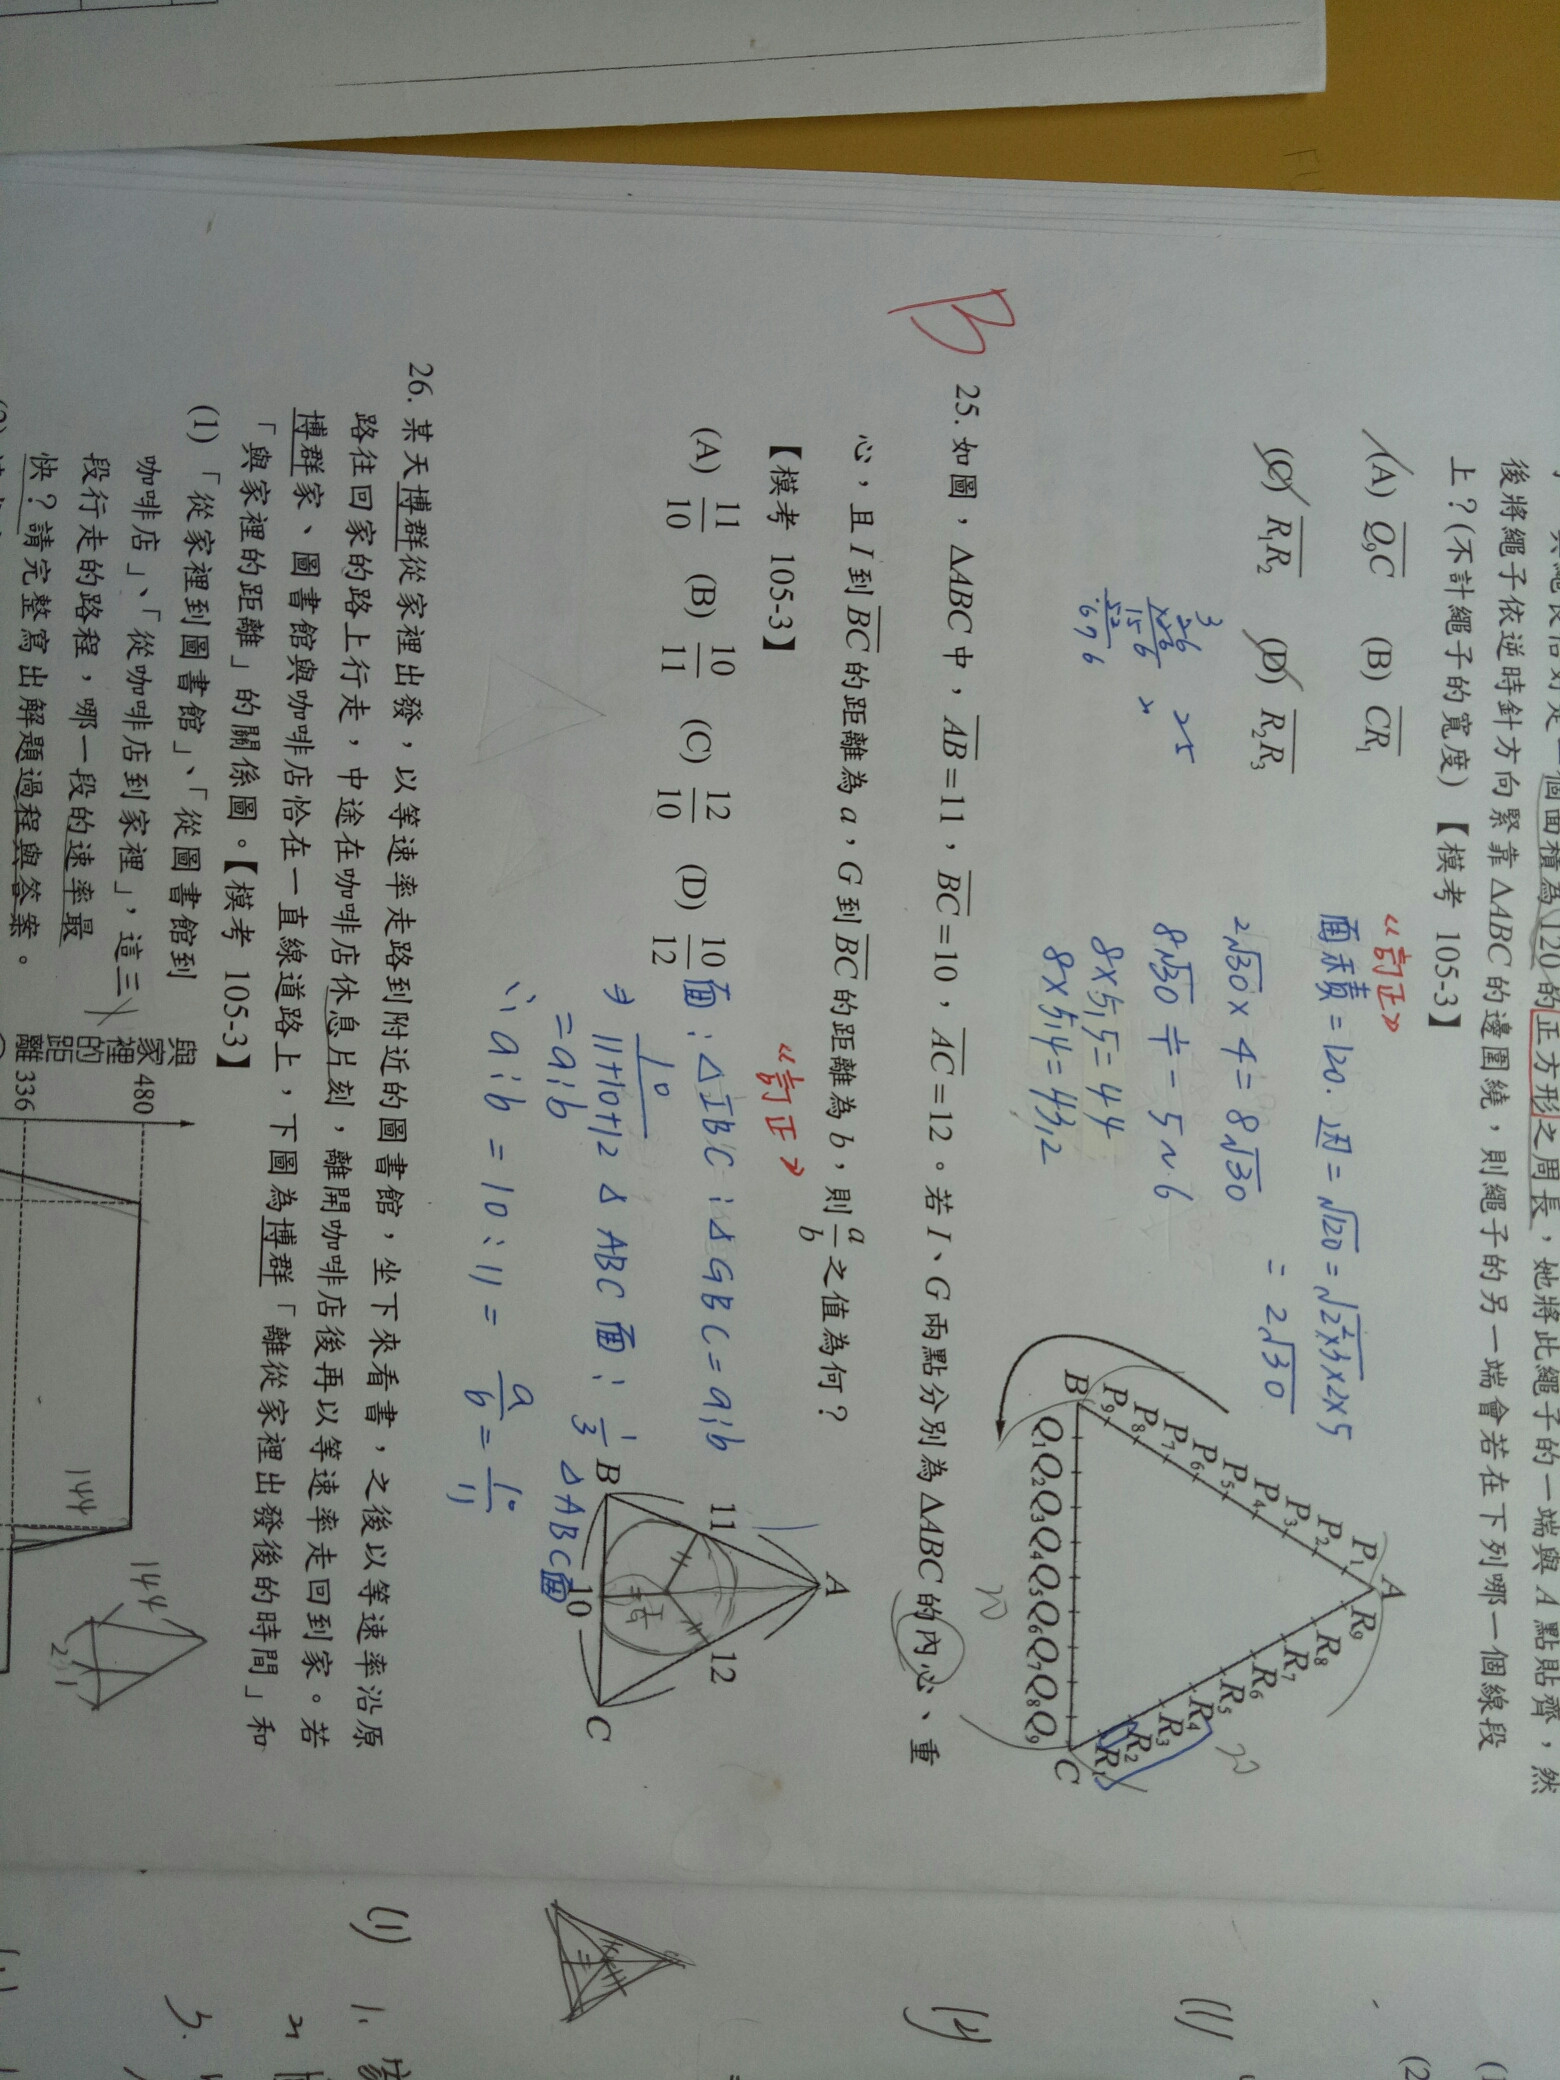 個面積為120的正方形之周長，她將此繩子的一端與A點貼齊，然
後將繩子依逆時針方向緊靠△ABC的邊圍繞，則繩子的另一端會落在下列哪一個線段
上？(不計繩子的寬度)【模考 105-3】
(A) Q₉C (B) CR₁
(C) R₁R₂ (D) R₂R₃
《訂正》
面積=120. 邊=√120=√2²×3×2×5
=2√30
2√30×4=8√30
8√30≒5~6
8×5.5=44
8×5.4=43.2
A
P₁ P₂ P₃ P₄ P₅ P₆ P₇ P₈ P₉
B
Q₁Q₂Q₃Q₄Q₅Q₆Q₇Q₈Q₉
C
R₁ R₂ R₃ R₄ R₅ R₆ R₇ R₈ R₉
B
25. 如圖，△ABC中，AB=11，BC=10，AC=12。若I、G兩點分別為△ABC的內心、重
心，且I到BC的距離為a，G到BC的距離為b，則a/b之值為何？
【模考 105-3】
(A) 11/10 (B) 10/11 (C) 12/10 (D) 10/12
《訂正》
面：△IBC：△GBC=a:b
⇒ 10/11+10+12 △ABC面：1/3 △ABC面
=a:b
∴a:b=10:11= a/b=10/11
A
11
12
B
10
C
26. 某天博群從家裡出發，以等速率走路到附近的圖書館，坐下來看書，之後以等速率沿原
路往回家的路上行走，中途在咖啡店休息片刻，離開咖啡店後再以等速率走回到家。若
博群家、圖書館與咖啡店恰在一直線道路上，下圖為博群「離從家裡出發後的時間」和
「與家裡的距離」的關係圖。【模考 105-3】
(1)「從家裡到圖書館」、「從圖書館到
咖啡店」、「從咖啡店到家裡」，這三
段行走的路程，哪一段的速率最
快？請完整寫出解題過程與答案。
與家裡的距離
480
336
144
144
(1)